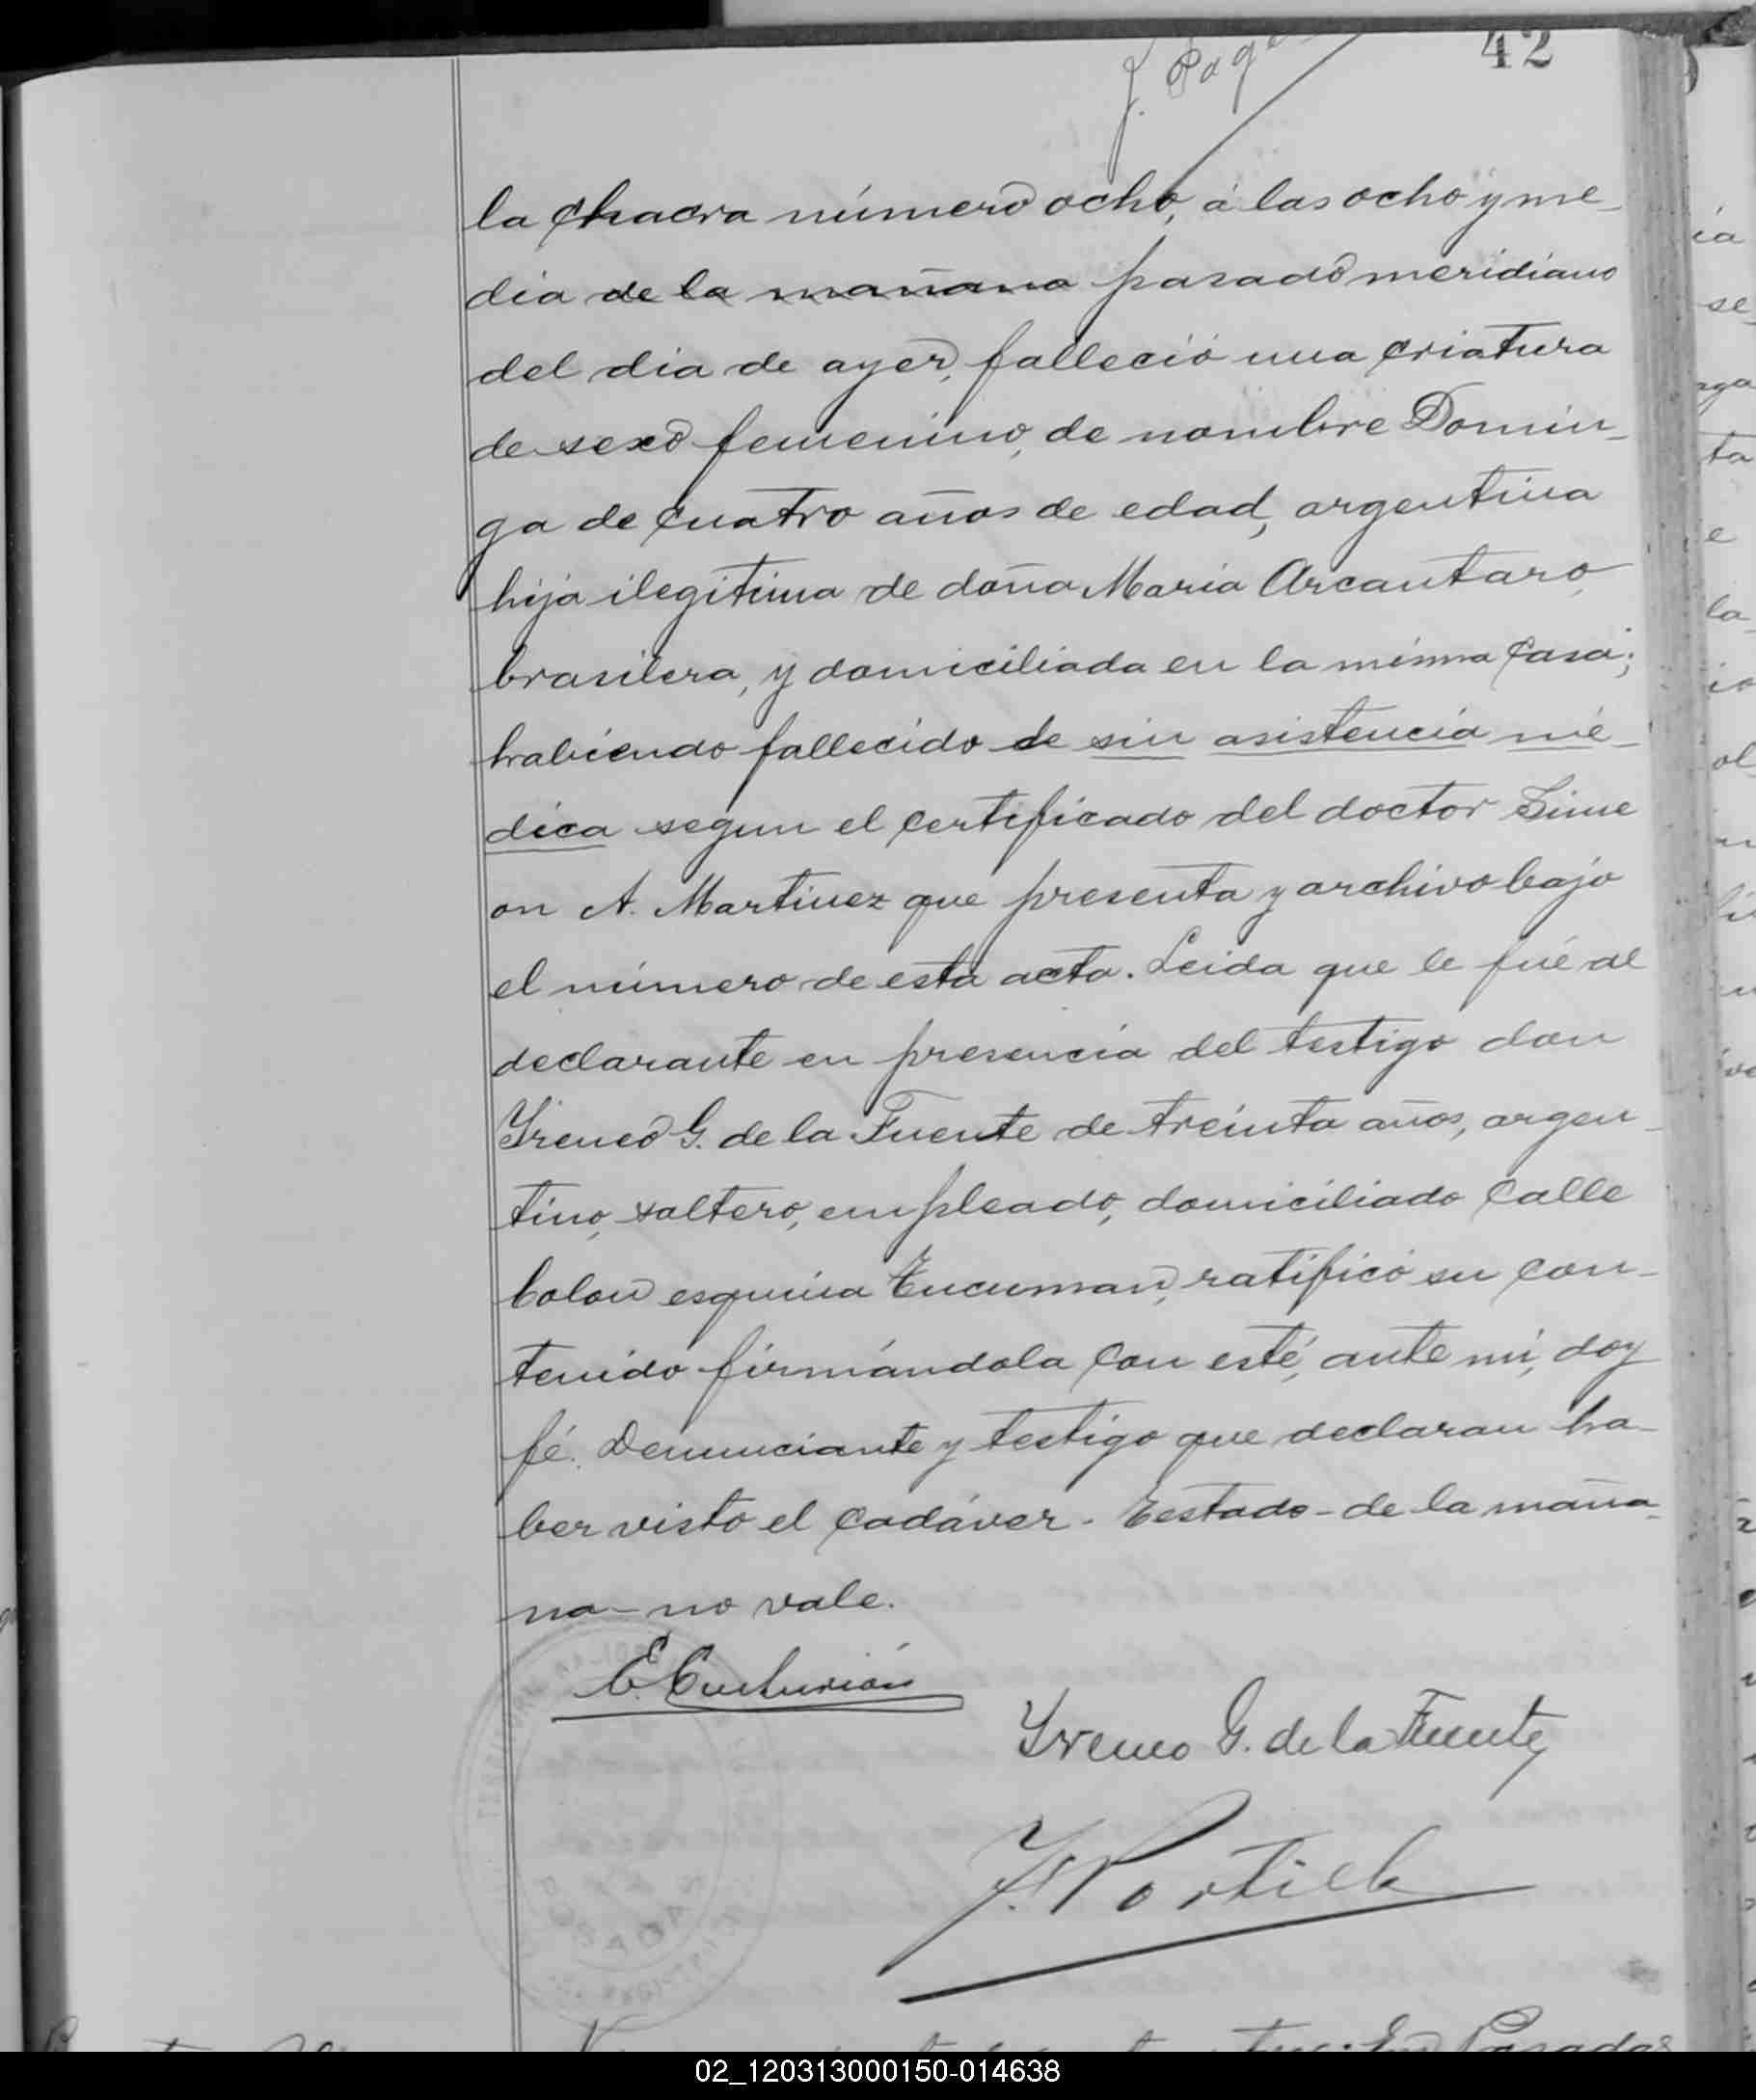 42
la chacra número ocho, á las ocho y me-
dia de la mañana pasado meridiano
del dia de ayer, falleció una criatura
de sexo femenino, de nombre Domin-
ga de cuatro años de edad, argentina
hija ilegitima de doña Maria Arcantaro,
brasilera, y domiciliada en la misma casa;
habiendo fallecido de sin asistencia mé-
dica segun el certificado del doctor Sime
on A. Martinez que presenta y archivo bajo
el número de esta acta. Leida que le fué al
declarante en presencia del testigo don
Yreneo G. de la Fuente de treinta años, argen-
tino, soltero, empleado, domiciliado calle
Colon esquina Tucuman, ratificó su con-
tenido firmándola con esté, ante mi, doy
fé. Denunciante y testigo que declaran ha-
ber visto el cadáver. Testado - de la maña-
na - no vale.
Yreneo G. de la Fuente
02_120313000150-014638